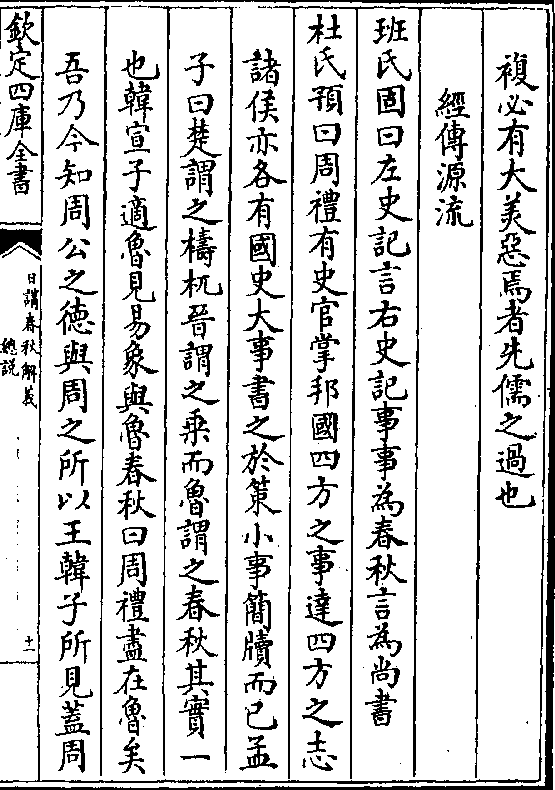 複必有大美惡焉者先儒之過也
經傳源流
班氏固曰左史記言右史記事事為春秋言為尚書
杜氏預曰周禮有史官掌邦國四方之事達四方之志
諸侯亦各有國史大事書之於策小事簡牘而已孟
子曰楚謂之檮杌晉謂之乗而魯謂之春秋其實一
也韓宣子適魯見易象與魯春秋曰周禮盡在魯矣
吾乃今知周公之德與周之所以王韓子所見蓋周
欽定四庫全書
日講春秋解義
總說
十一